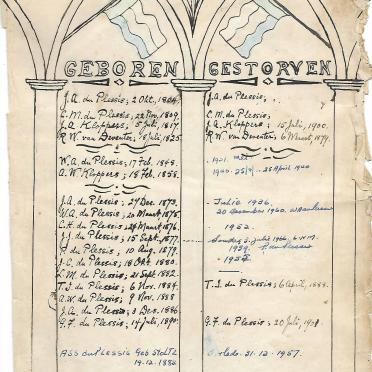 GEBOREN
J.A. du Plessis; 2 Okt. 1804.
C.M. du Plessis, 22 Nov. 1809.
J.A. Kloppers; 5 Juli, 1817.
R.W. van Deventer; Juli, 1825.
W.A. du Plessis; 17 Feb. 1848.
A.W. Kloppers; 18 Feb. 1858.
J.A. du Plessis; 27 Dec. 1873.
W.A. du Plessis; 20 Maart 1875.
C.H. du Plessis, 24 Maart 1876.
J.J. du Plessis; 15 Sept. 1877.
P. du Plessis; 10 Aug. 1879.
J.C. du Plessis; 18 Okt. 1880.
L.M. du Plessis; 21 Sept. 1882.
T.J. du Plessis; 6 Nov. 1884.
A.W. du Plessis; 9 Nov. 1888
J.A. du Plessis; 3 Dec. 1886.
G.F. du Plessis; 14 Julie, 1890.
ASS du Plessis Geb Stoltz
19.12.1886
GESTORVEN
J.A. du Plessis;
C.M. du Plessis;
J.A. Kloppers; 15 Julij, 1900.
R.W. van Deventer; 6 Maart, 1879.
1921.
1940. 25 April 1940
Julie 1936.
20 December 1960.
1952.
Sondag 3 Julie 1966
1939.
1952
T.J. du Plessis; 6 April, 1888.
G.F. du Plessis; 20 Julij, 1901
Overlede. 31.12.1957.